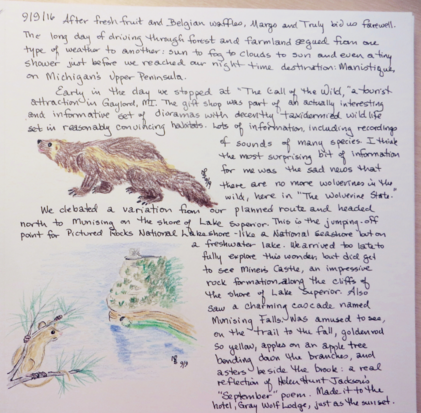 9/9/16 After fresh fruit and Belgian waffles, Margo and Truly bid us farewell.
The long day of driving through forest and farmland segued from one
type of weather to another: sun to fog to clouds to sun and even a tiny
shower just before we reached our night-time destination: Manistique,
on Michigan's Upper Peninsula.
Early in the day we stopped at "The Call of the Wild," a tourist
attraction in Gaylord, MI. The gift shop was part of an actually interesting
and informative set of dioramas with decently taxidermied wild life
set in reasonably convincing habitats. Lots of information, including recordings
of sounds of many species. I think
the most surprising bit of information
for me was the sad news that
there are no more wolverines in the
wild, here in "The Wolverine State."
We debated a variation from our planned route and headed
north to Munising on the shore of Lake Superior. This is the jumping-off
point for Pictured Rocks National Lakeshore - like a National Seashore but on
a freshwater lake. We arrived too late to
fully explore this wonder but did get
to see Miners Castle, an impressive
rock formation along the cliffs of
the shore of Lake Superior. Also
saw a charming cascade named
Munising Falls. Was amused to see,
on the trail to the fall, goldenrod
so yellow, apples on an apple tree
bending down the branches, and
asters beside the brook: a real
reflection of Helen Hunt Jackson's
"September" poem. Made it to the
hotel, Gray Wolf Lodge, just as the sunset.